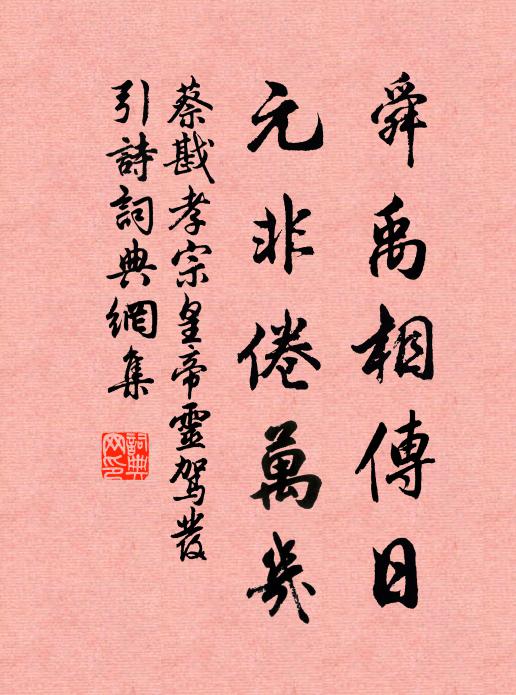 舜禹相傳日
元非倦萬幾
蔡戡孝宗皇帝靈駕發
引詩詞典網集
詞典網印